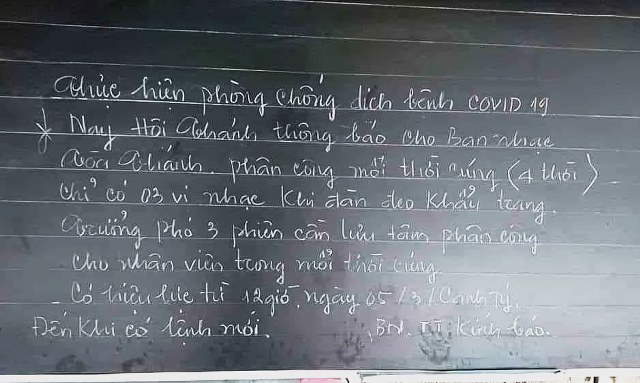 Thực hiện phòng chống dịch bệnh COVID 19
Nay Hội Thánh thông báo cho Ban nhạc
Tòa Thánh. phân công mỗi thời cúng (4 thời)
chỉ có 03 vị nhạc khi đàn đeo khẩu trang.
Trưởng phó 3 phiên cần lưu tâm phân công
cho nhân viên trong mỗi thời cúng
- Có hiệu lực từ 12giờ, ngày 05/3/Canh Tý.
Đến khi có lệnh mới. BN. TT. Kính báo.